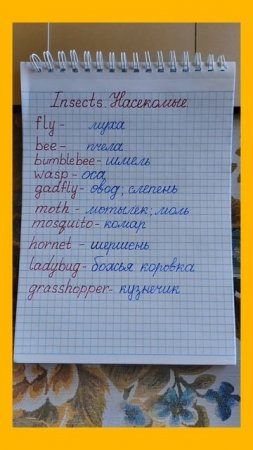 Insects. Насекомые.
fly - муха
bee - пчела
bumblebee - шмель
wasp - оса
gadfly - овод, слепень
moth - мотылек, моль
mosquito - комар
hornet - шершень
ladybug - божья коровка
grasshopper - кузнечик